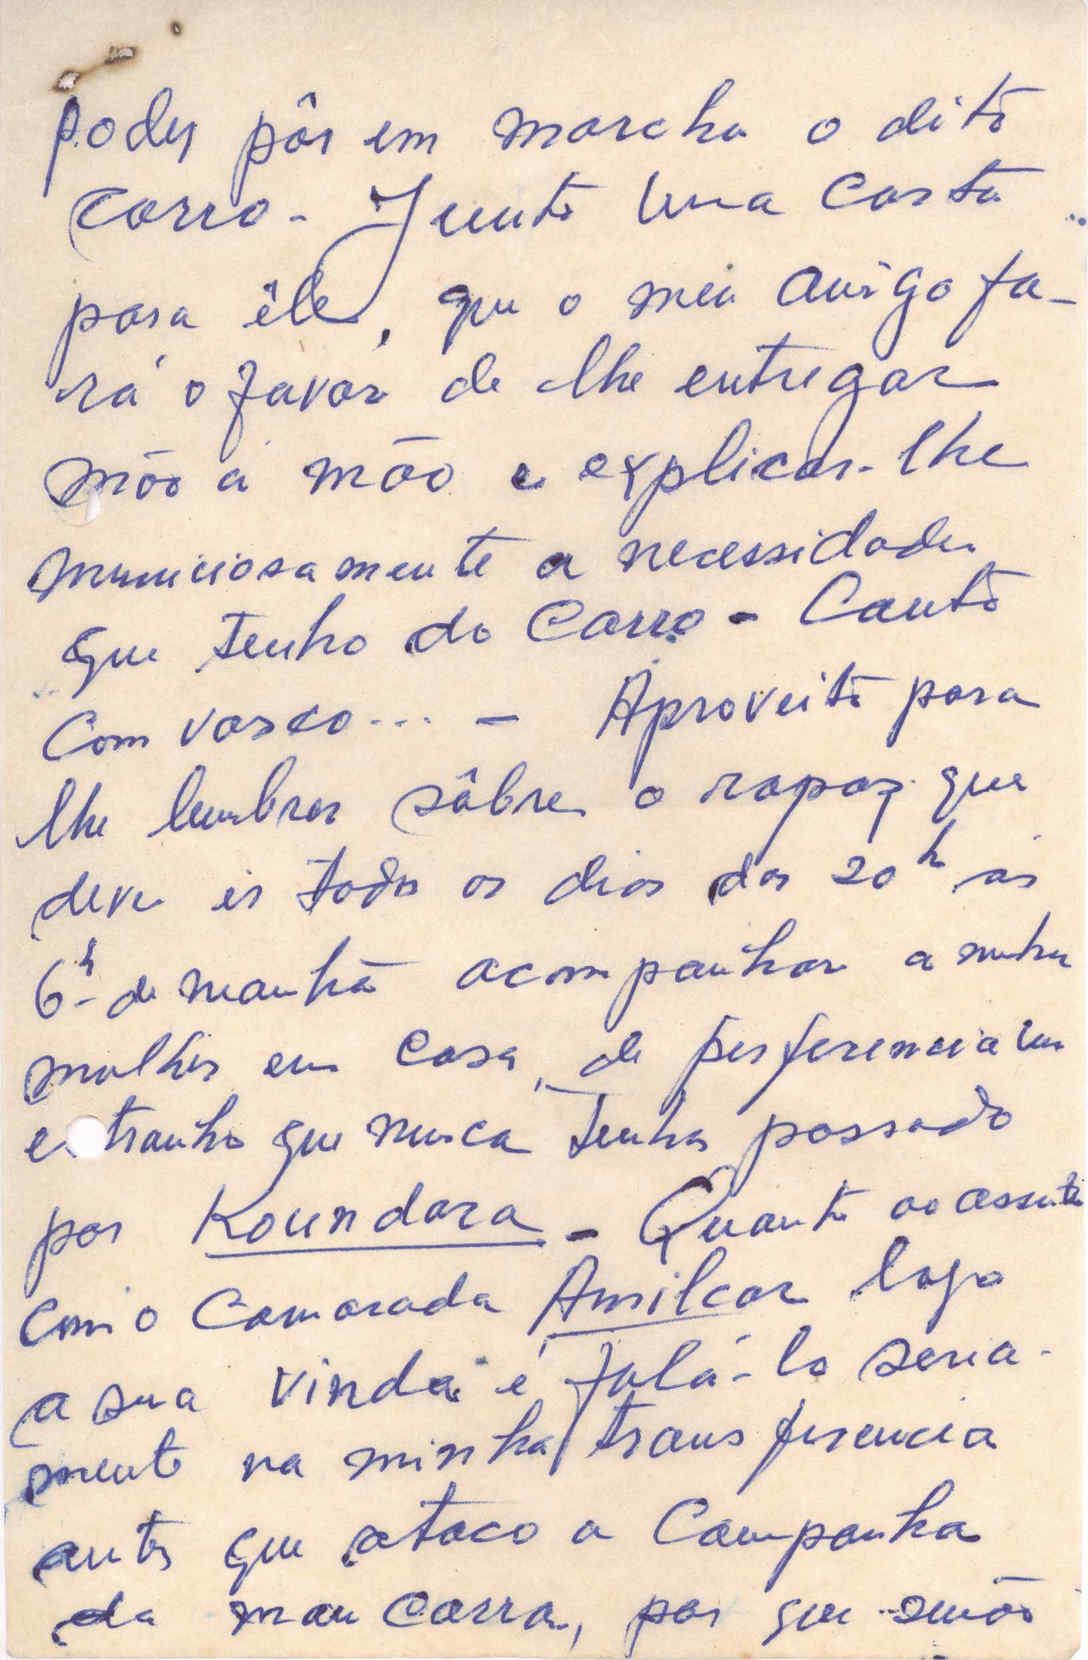 podes pôr em marcha o dito
carro - Junto uma carta
para êle, que o meu amigo fa-
rá o favor de lhe entregar
mão a mão e explicar-lhe
municiosamente a necessidade
que tenho do carro - Conto
com vosco... - Aproveito para
lhe lembrar sôbre o rapaz que
deve ir todos os dias das 20h às
6h de manhã acompanhar a minha
mulher em casa, de perferencia um
estranho que nunca tenha passado
por Koundara - Quanto ao assunto
com o Camarada Amilcar logo
a sua vinda é falá-lo seria-
mente na minha transferencia
antes que ataco a Campanha
da mancarra, por que senão